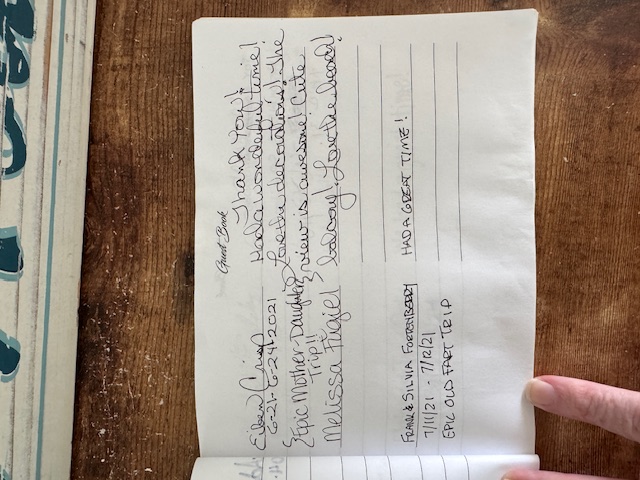 Guest Book
Thank You!
Eileen Crisp Had a wonderful time!
6-21-6-24-2021 Love the decorations! The
Epic Mother-Daughter view is awesome! Cute
Trip!!
Melissa Pagiel balcony! Love the beach!
FRANK & SILVIA FORTENBERRY HAD A GREAT TIME!
7/11/21 - 7/12/21
EPIC OLD FART TRIP